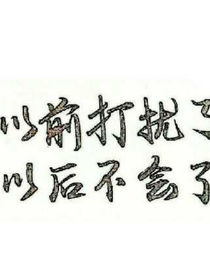 以前打扰了
以后不会了